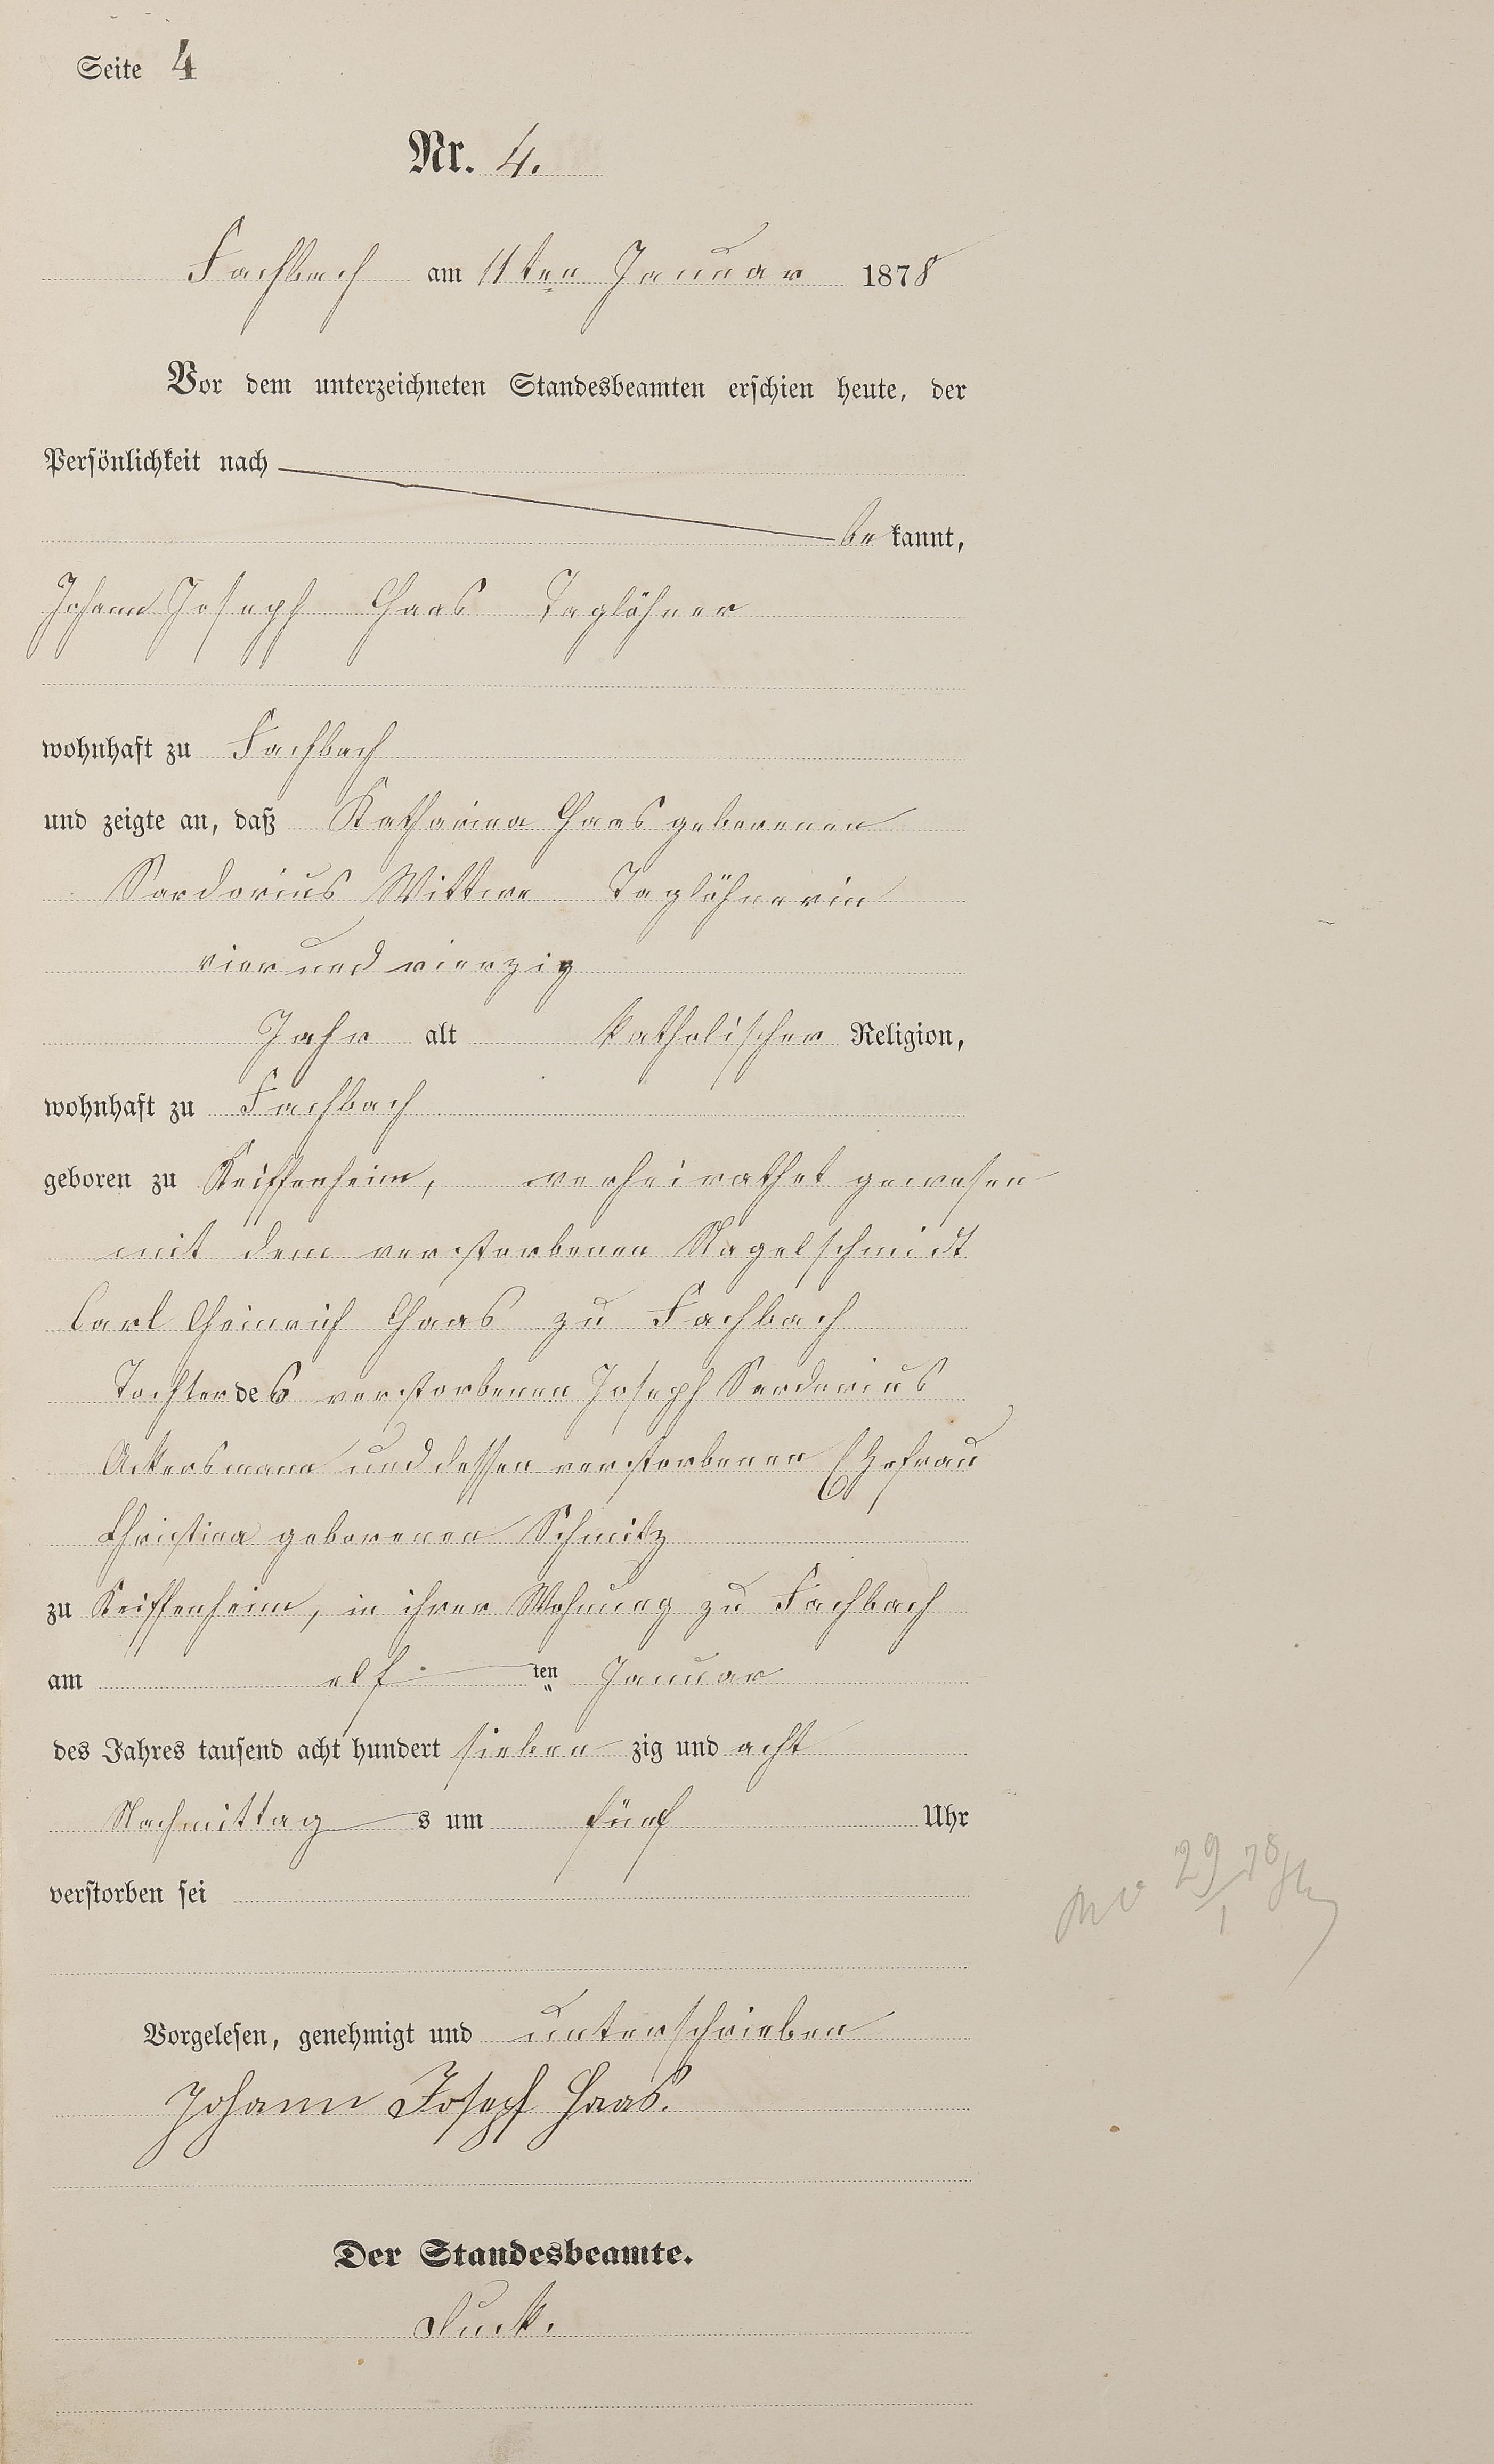 Seite 4
Nr. 4.
Fachbach am 11ten Januar 1878
Vor dem unterzeichneten Standesbeamten erschien heute, der
Persönlichkeit nach
bekannt,
Johann Joseph Haas Taglöhner
wohnhaft zu Fachbach
und zeigte an, daß Katharina Haas geborenen
Sardorius Wittwe Taglöhnerin
vier und vierzig
Jahr alt katholischer Religion,
wohnhaft zu Fachbach
geboren zu Keiffenheim, verheirathet gewesen
mit dem verstorbenen Nagelschmidt
Carl Heinrich Haas zu Fachbach
Tochter des verstorbenen Joseph Sardorius
Ackersmann und dessen verstorbenen Ehefrau
Christina geborenen Schmitz
zu Keiffenheim, in ihrer Wohnung zu Fachbach
am elf ten Januar
des Jahres tausend acht hundert sieben zig und acht
Nachmittag s um fünf Uhr
verstorben sei
29/1 78
Vorgelesen, genehmigt und unterschrieben
Johann Joseph Haas.
Der Standesbeamte.